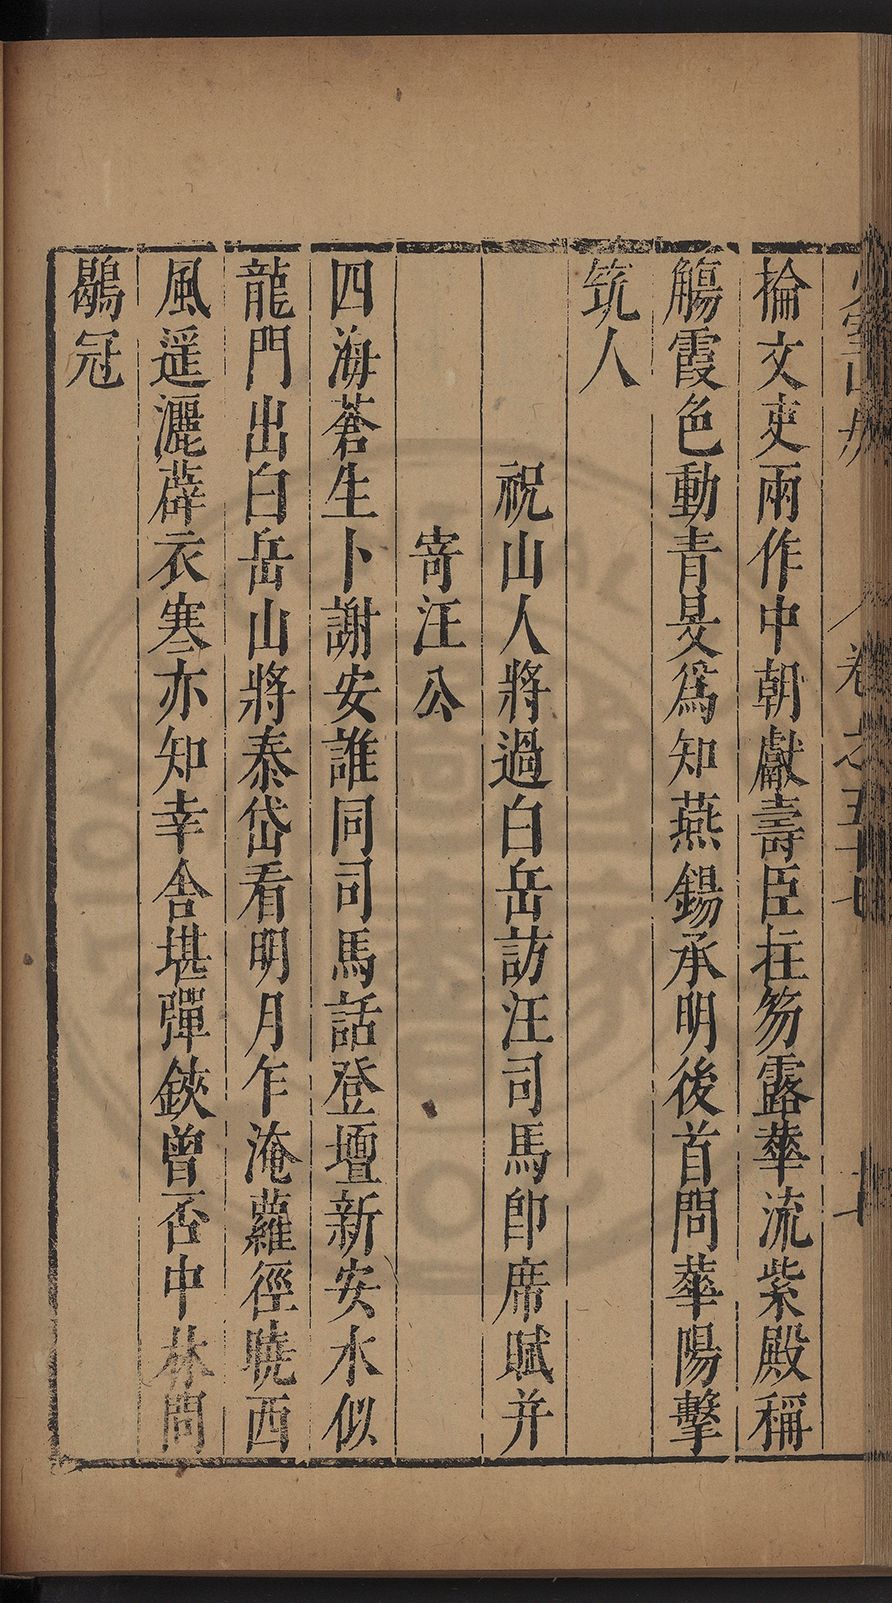 掄文吏兩作中朝獻壽臣拄笏露華流紫殿稱
觴霞色動青旻為知燕錫承明後首問華陽擊
筑人
祝山人將過白岳訪汪司馬卽席賦并
寄汪公
四海蒼生卜謝安誰同司馬話登壇新安水似
龍門出白岳山將泰岱看明月乍淹蘿徑曉西
風遥灑薜衣寒亦知幸舍堪彈鋏曾否中林問
鶡冠
卷之五十七